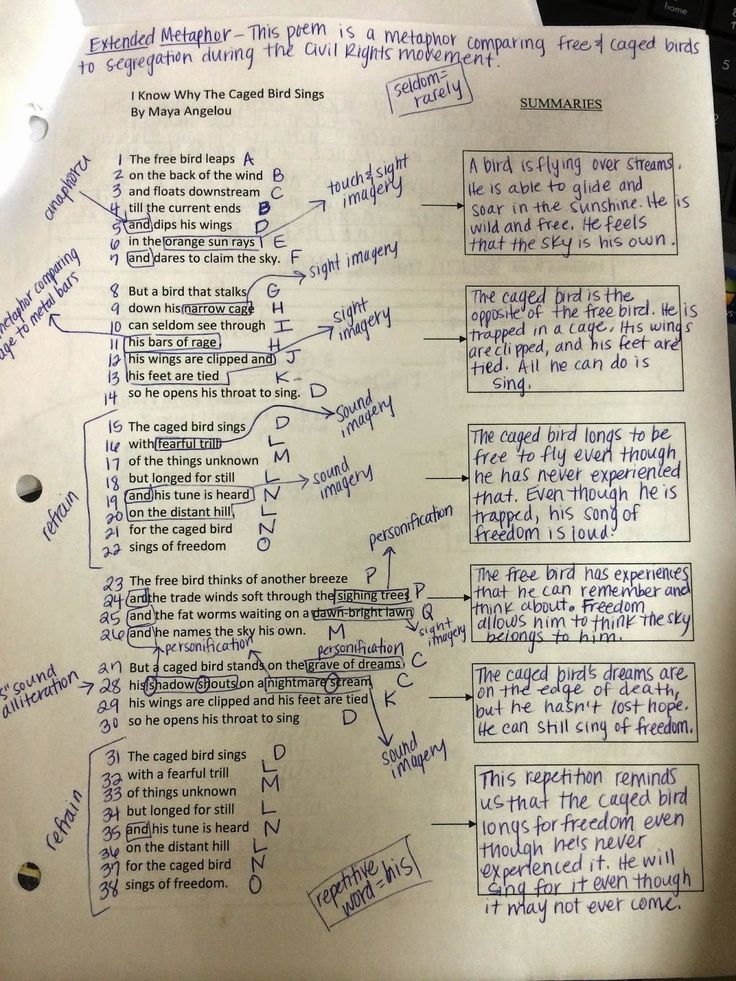 Extended Metaphor - This poem is a metaphor comparing free & caged birds
to segregation during the Civil Rights movement.
seldom=
rarely
I Know Why The Caged Bird Sings
By Maya Angelou
SUMMARIES
anaphora
1 The free bird leaps A
2 on the back of the wind B
3 and floats downstream C
4 till the current ends B
5 and dips his wings D
6 in the orange sun rays E
7 and dares to claim the sky. F
touch & sight
imagery
A bird is flying over streams.
He is able to glide and
soar in the sunshine. He is
wild and free. He feels
that the sky is his own.
sight imagery
metaphor comparing
age to metal bars
8 But a bird that stalks G
9 down his narrow cage H
10 can seldom see through I
11 his bars of rage H
12 his wings are clipped and J
13 his feet are tied K
14 so he opens his throat to sing. D
sight
imagery
The caged bird is the
opposite of the free bird. He is
trapped in a cage. His wings
are clipped, and his feet are
tied. All he can do is
sing.
refrain
15 The caged bird sings D
16 with fearful trill L
17 of the things unknown M
18 but longed for still L
19 and his tune is heard N
20 on the distant hill, L
21 for the caged bird N
22 sings of freedom O
sound
imagery
sound
imagery
The caged bird longs to be
free to fly even though
he has never experienced
that. Even though he is
trapped, his song of
freedom is loud.
personification
23 The free bird thinks of another breeze P
24 and the trade winds soft through the sighing trees P
25 and the fat worms waiting on a dawn-bright lawn Q
26 and he names the sky his own. M
sight
imagery
The free bird has experiences
that he can remember and
think about. Freedom
allows him to think the sky
belongs to him.
personification
personification
"s" sound
alliteration
27 But a caged bird stands on the grave of dreams C
28 his shadow shouts on a nightmare scream C
29 his wings are clipped and his feet are tied K
30 so he opens his throat to sing D
sound
imagery
The caged bird's dreams are
on the edge of death,
but he hasn't lost hope.
He can still sing of freedom.
refrain
31 The caged bird sings D
32 with a fearful trill L
33 of things unknown M
34 but longed for still L
35 and his tune is heard N
36 on the distant hill L
37 for the caged bird N
38 sings of freedom. O
repetitive
word=his
This repetition reminds
us that the caged bird
longs for freedom even
though he's never
experienced it. He will
sing for it even though
it may not ever come.